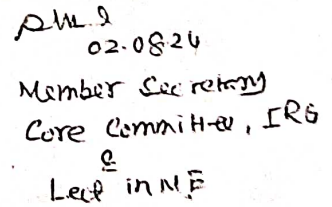 02.08.24
Member Secretary
Core Committee, IRG
&
Lect in ME